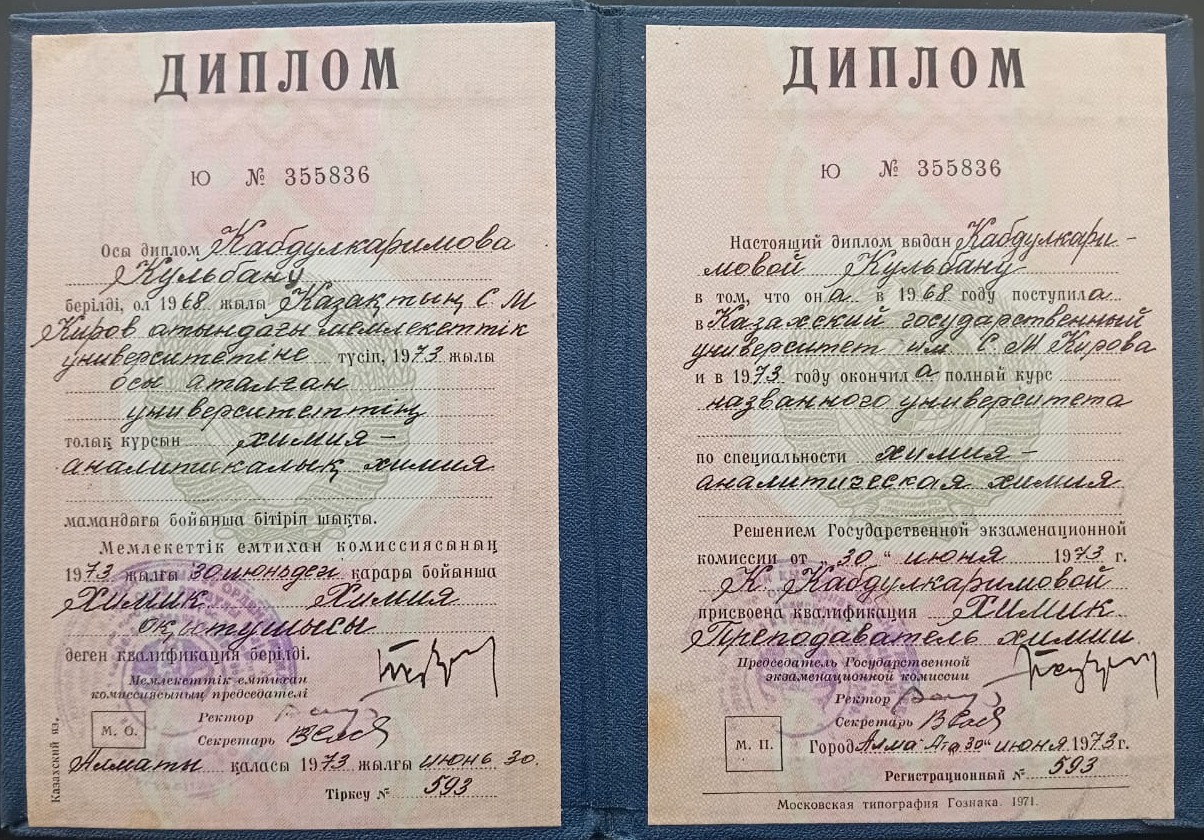 ДИПЛОМ
Ю № 355836
Осы диплом Кабдулкаримова
Кульбану
берілді, ол 1968 жылы Казақтың С М
Киров атындағы мемлекеттік
университетіне түсіп, 1973 жылы
осы аталған
университеттің
толақ курсын химия-
аналитикалық химия
мамандығы бойынша бітіріп шықты.
Мемлекеттік емтихан комиссиясының
1973 жылғы 30 июньдегі қарары бойынша
Химик Химия
оқытушысы
деген квалификация берілді.
Мемлекеттік емтихан
комиссиясының председателі
Ректор
Секретарь
М. О.
Алматы қаласы 1973 жылғы июнь 30.
Тіркеу № 593
Казахский яз.
ДИПЛОМ
Ю № 355836
Настоящий диплом выдан Кабдулкари-
мовой Кульбану
в том, что она в 1968 году поступила
в Казахский государственный
университет им С М Кирова
и в 1973 году окончила полный курс
названного университета
по специальности химия-
аналитическая химия
Решением Государственной экзаменационной
комиссии от 30 " июня 1973 г.
К. Кабдулкаримовой
присвоена квалификация Химик
Преподаватель химии
Председатель Государственной
экзаменационной комиссии
Ректор
Секретарь
М. П.
Город Алма-Ата 30" июня 1973 г.
Регистрационный № 593
Московская типография Гознака. 1971.